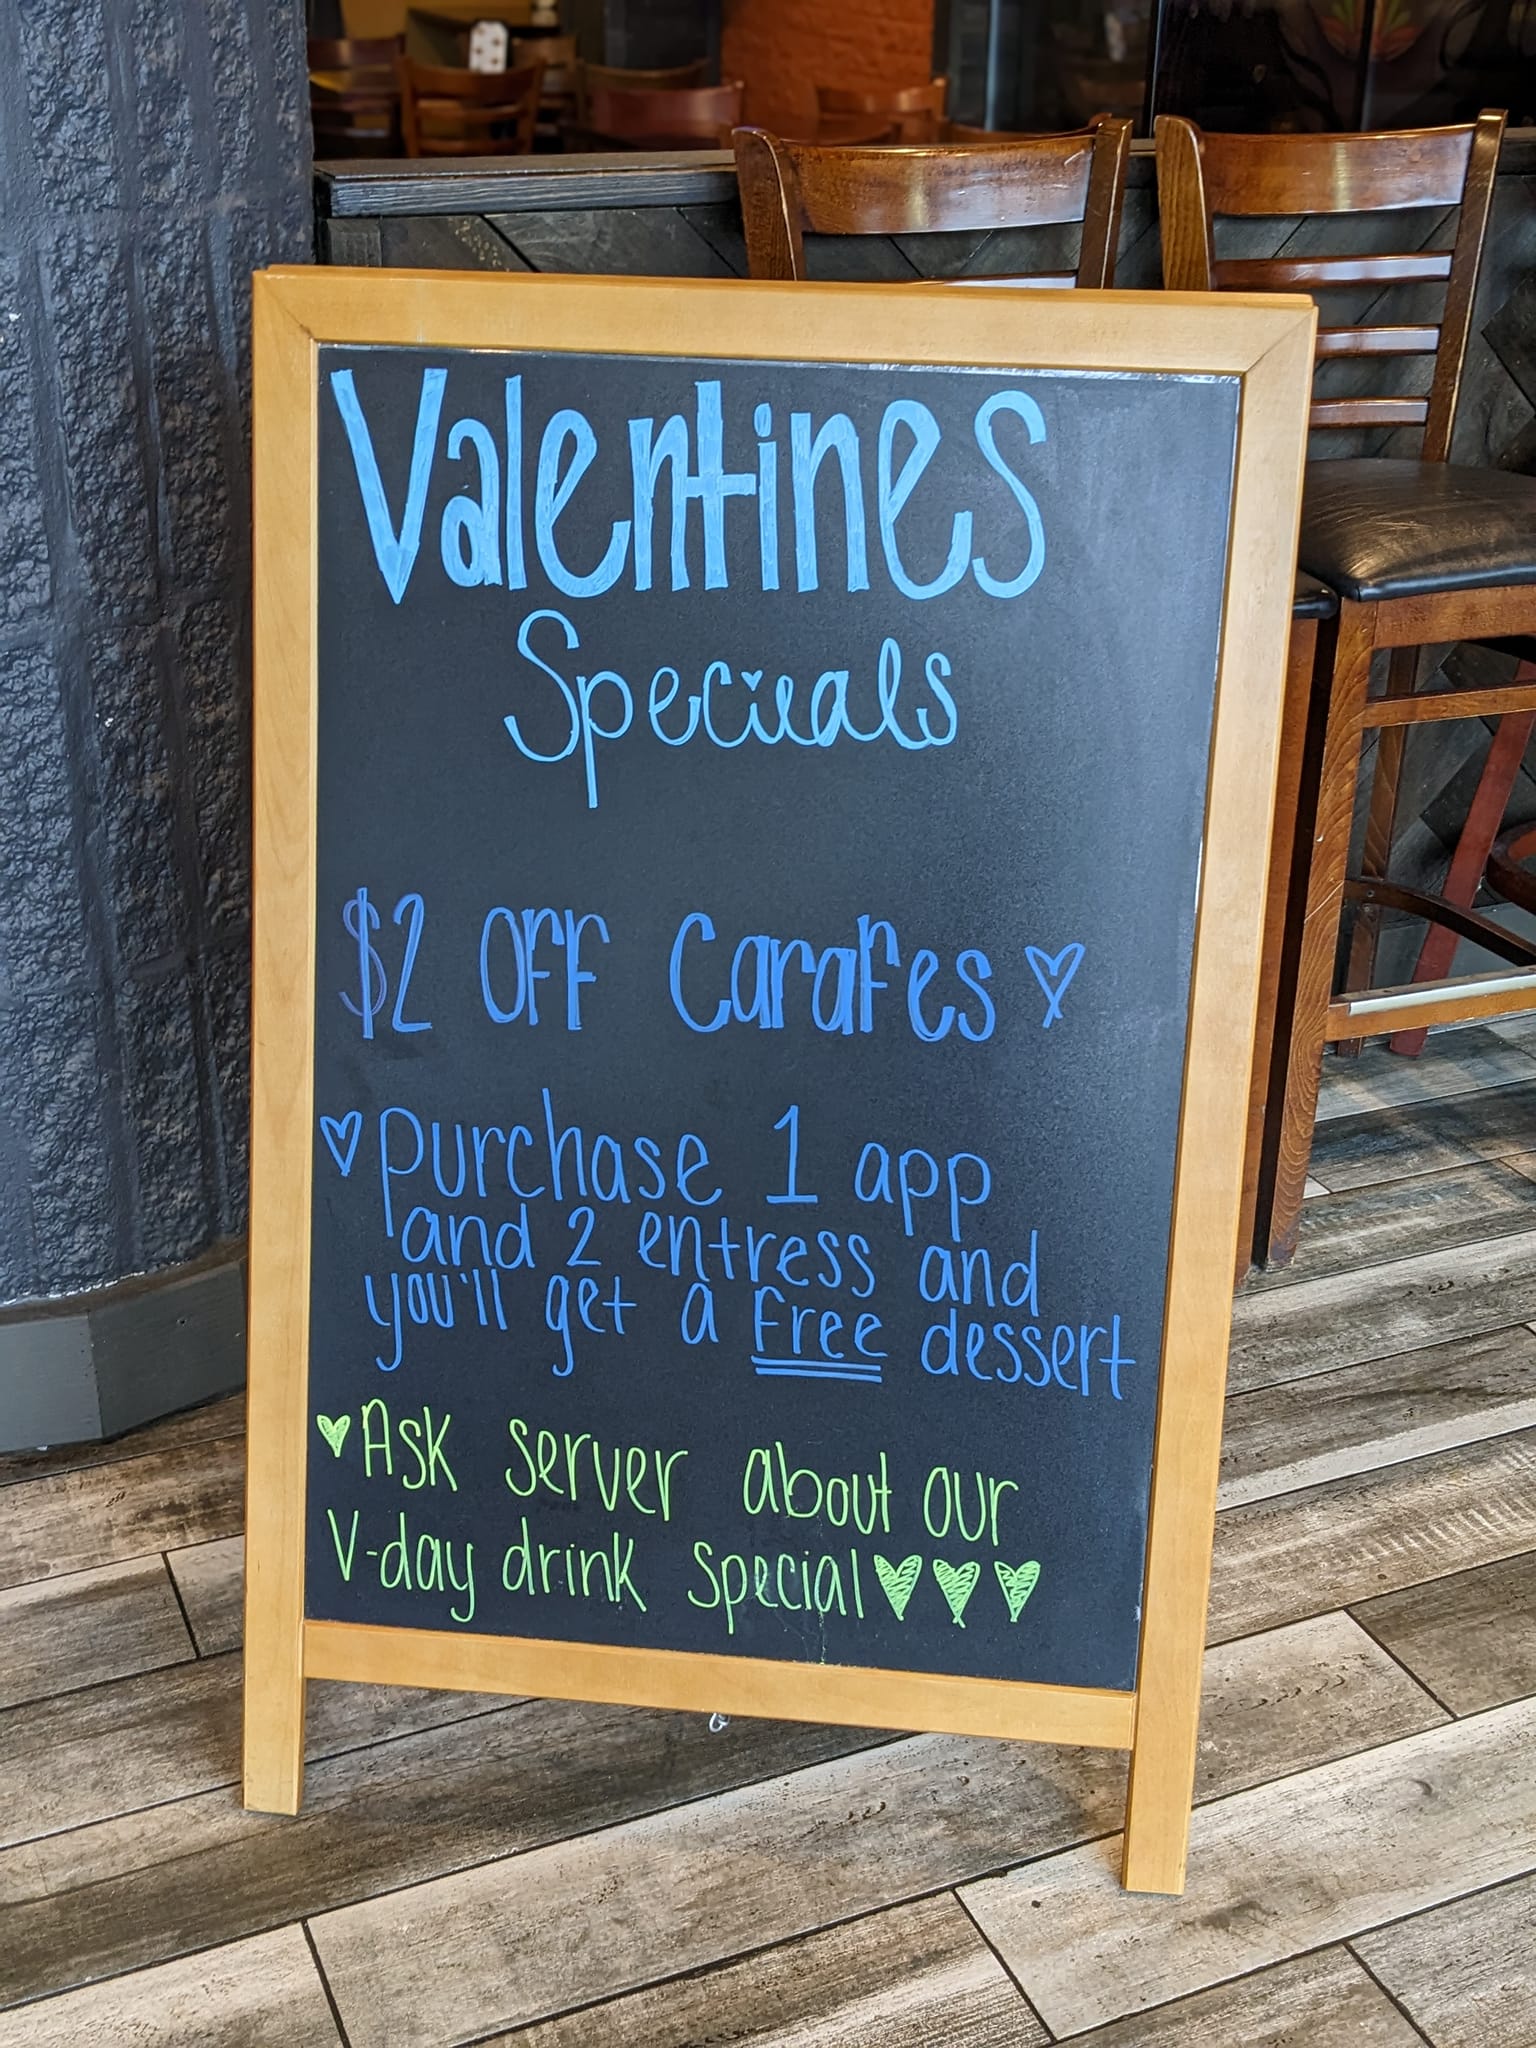 Valentines
Specials
$2 OFF Carafes
purchase 1 app
and 2 entress and
you'll get a Free dessert
Ask server about our
V-day drink special